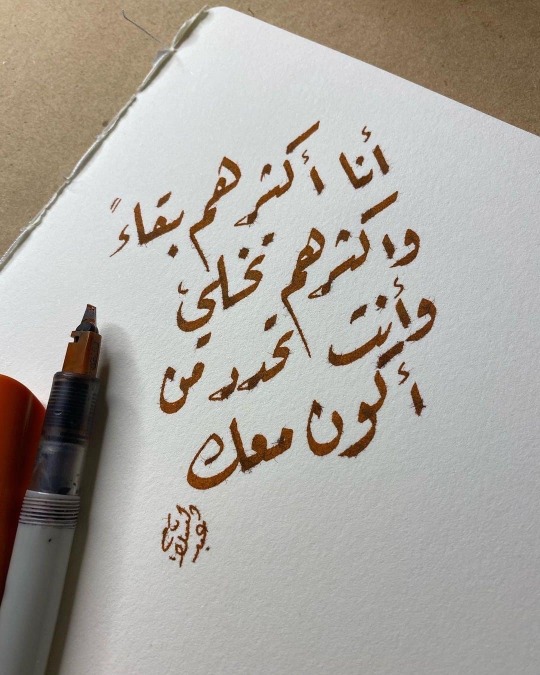 أنا أكثرهم بقاءً
وأكثرهم تخلي
وأنت تحدد من
أكون معك